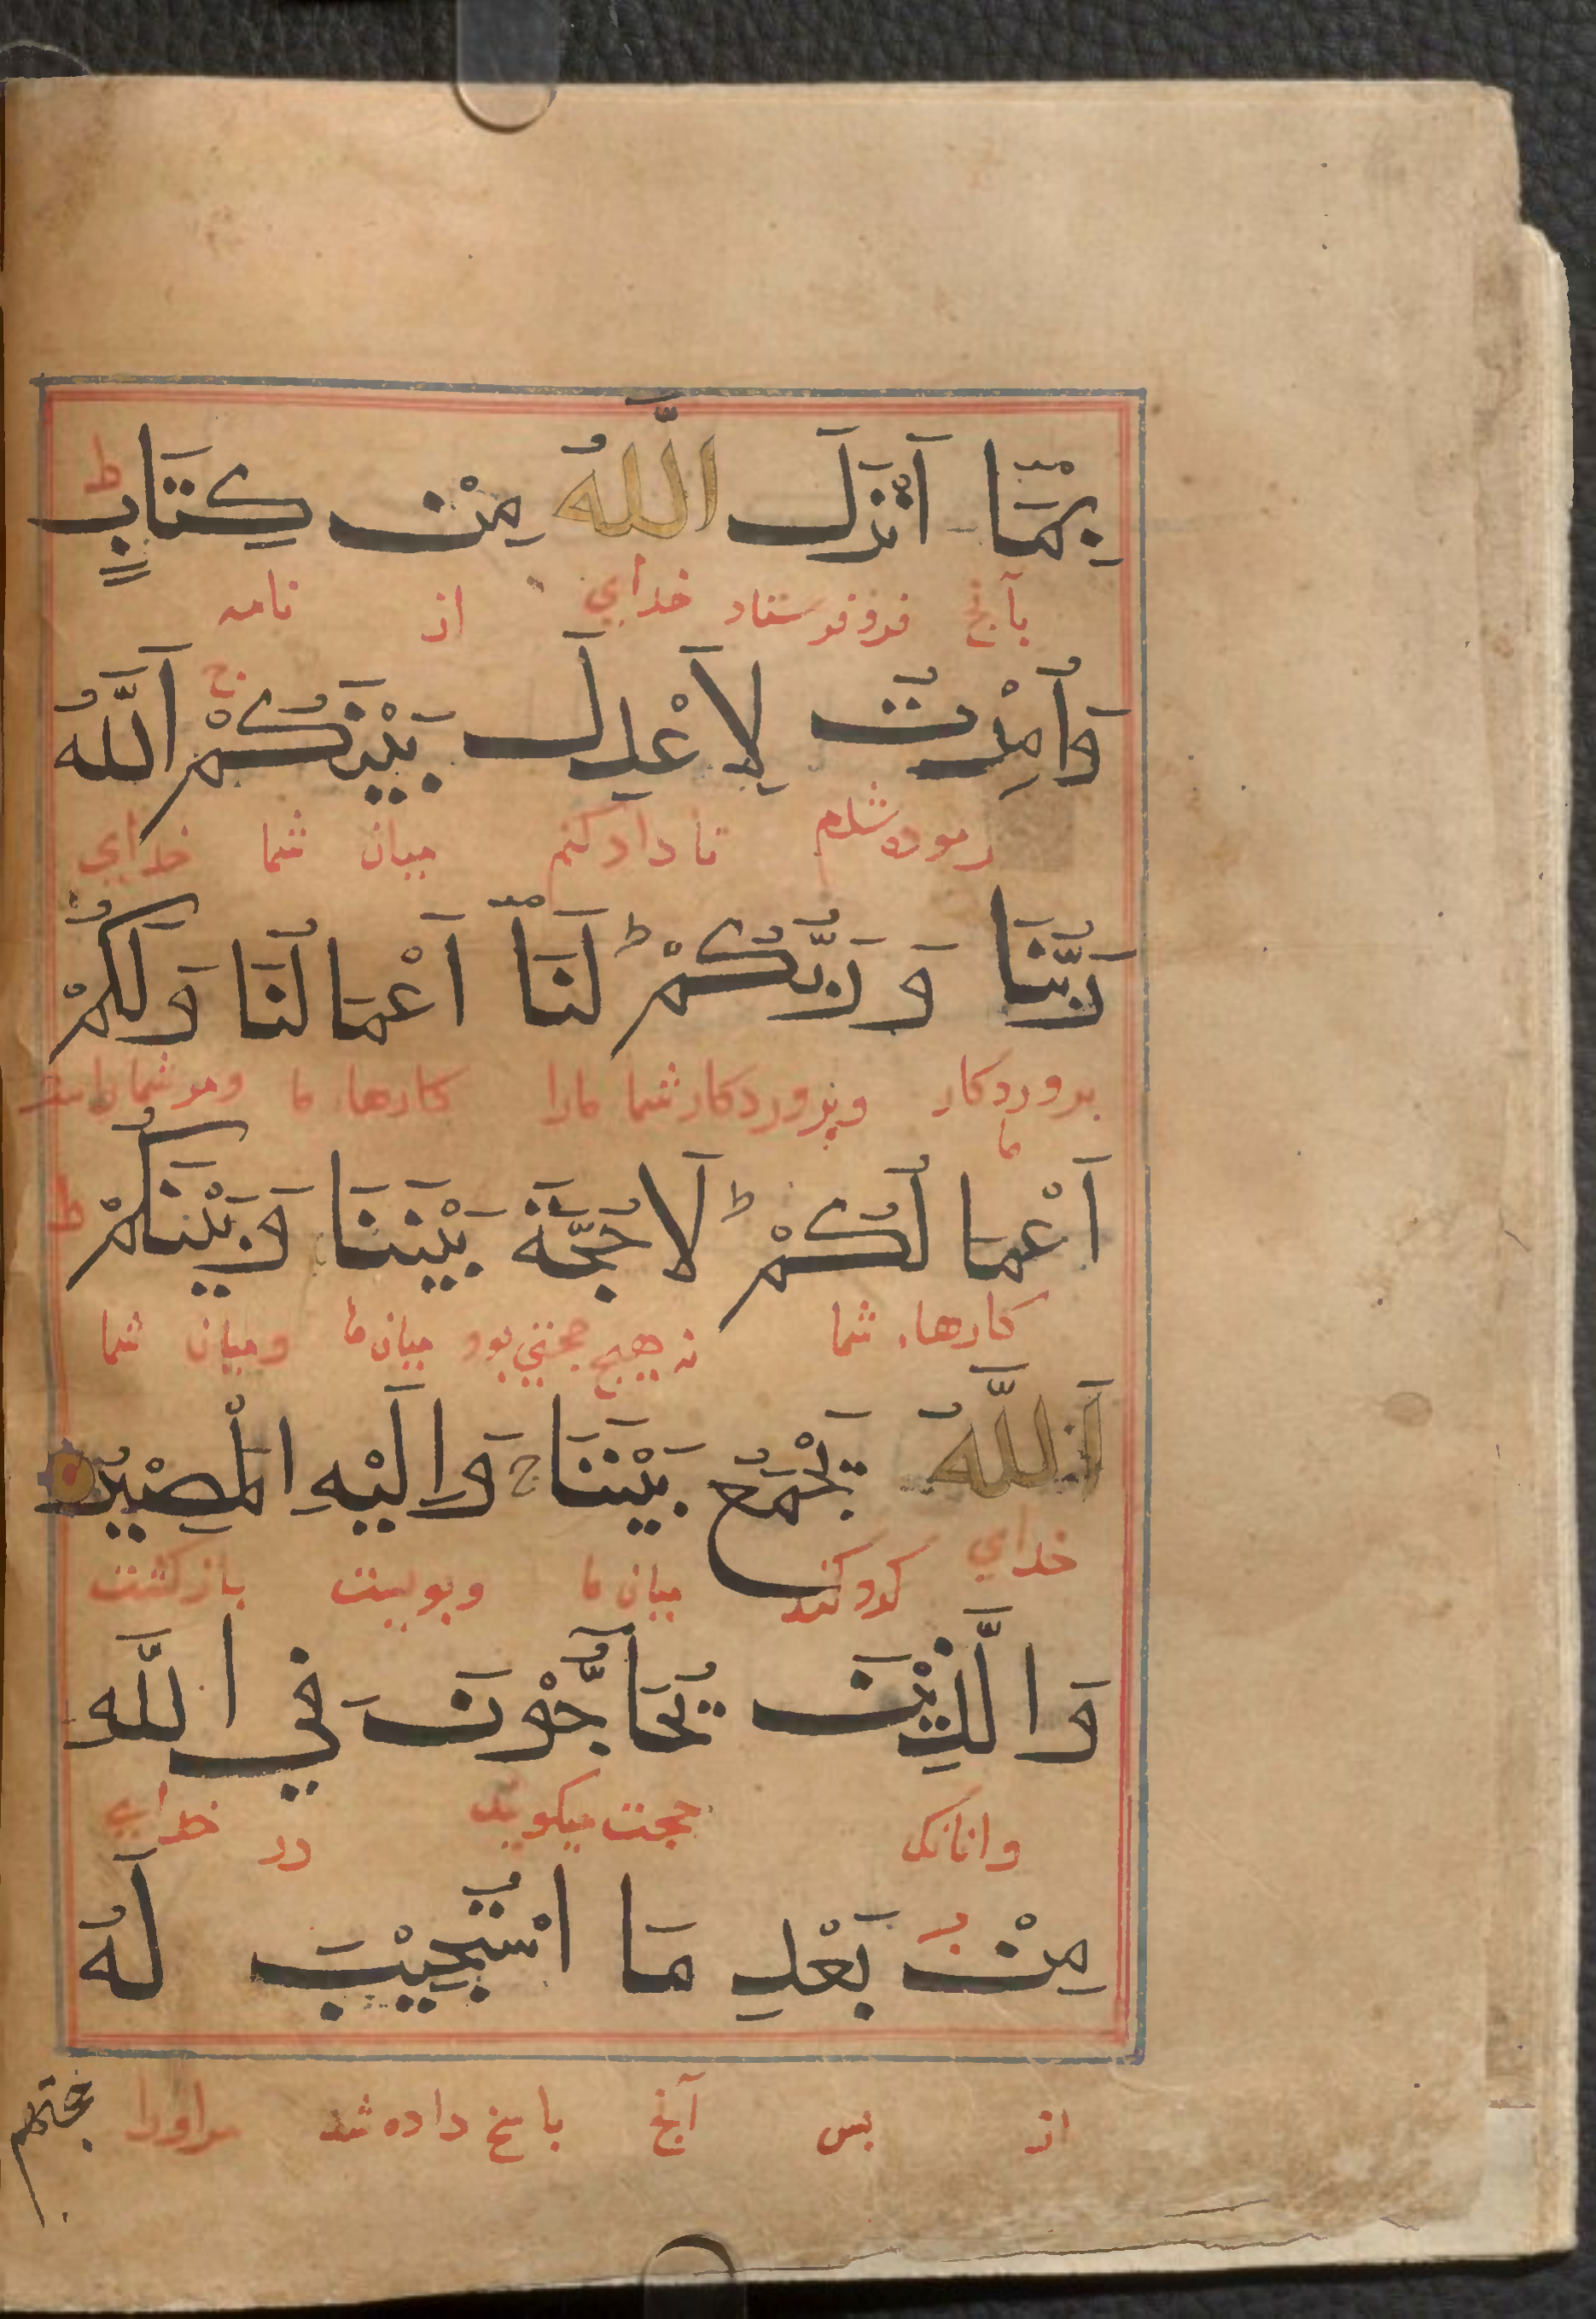 بِمَآ اَنْزَلَ اللّٰهُ مِنْ كِتَابٍ ط
بآنچ فروفرستاد خدای از نامه
وَاُمِرْتُ لِاَعْدِلَ بَيْنَكُمْ ج اَللّٰهُ
رموده شدم تا داد کنم میان شما خدای
رَبُّنَا وَرَبُّكُمْ ط لَنَآ اَعْمَالُنَا وَلَكُمْ
پروردکار ما وپروردکار شما مارا کارهاء ما ومر شماراست
اَعْمَالُكُمْ ط لَا حُجَّةَ بَيْنَنَا وَبَيْنَكُمْ ط
کارهاء شما نه هیچ حجتی بود میان ما ومیان شما
اَللّٰهُ يَجْمَعُ بَيْنَنَا ج وَاِلَيْهِ الْمَصِيْرُ
خدای کرد کند میان ما وبویست بازکشت
وَالَّذِيْنَ يُحَآجُّوْنَ فِي اللّٰهِ
وانانک حجت میکویند در خدای
مِنْ بَعْدِ مَا اسْتُجِيْبَ لَهُ
از پس آنچ پاسخ داده شد مراورا
حجتهم